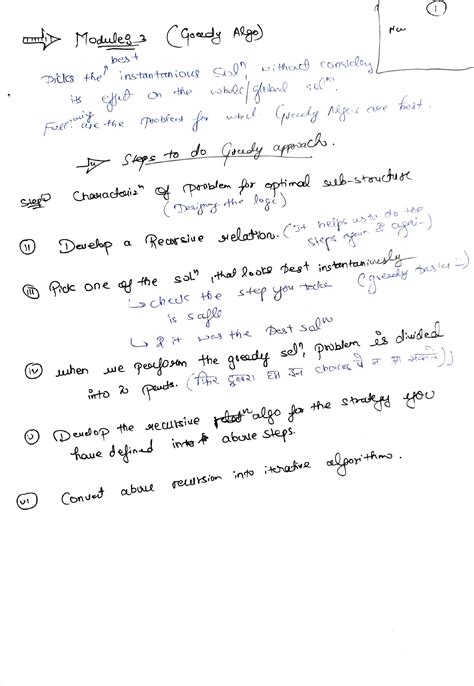 1
New
Module 3 (Greedy Algo)
Picks the best instantanious solⁿ, without considey
its effect on the whole/global solⁿ.
are the problem for which Greedy Algo's are best.
Steps to do Greedy approach.
Step① Characterizⁿ of problem for optimal sub-structure
(Designing the logic)
II Develop a Recursive relation. (It helps us to do the
steps again & again.)
III Pick one of the solⁿ, that looks best instantaniously
(greedy
↳ check the step you take
is safe
↳ & it was the best solⁿ
IV when we perform the greedy selⁿ, problem is divided
into 2 parts. (फिर दुबारा इन choices पे न जा सकते)
V Develop the recursive algo for the strategy you
have defined in above steps.
VI Convert above recursion into iterative algorithm.